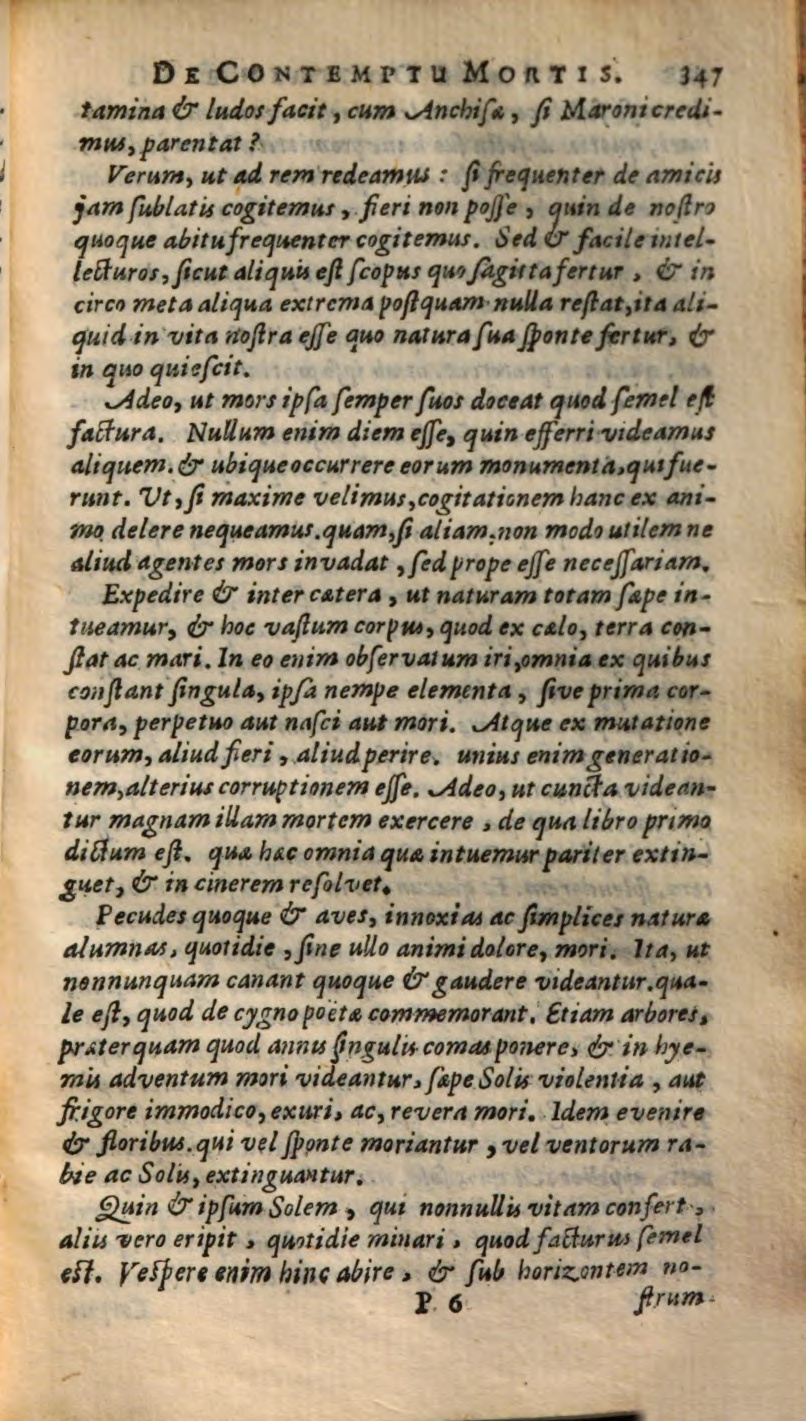 DE CONTEMPTU MORTIS. 347
tamina & ludos facit, cum Anchisæ, si Maroni credi-
mus, parentat?
Verum, ut ad rem redeamus: si frequenter de amicis
jam sublatis cogitemus, fieri non posse, quin de nostro
quoque abitu frequenter cogitemus. Sed & facile intel-
lecturos, sicut aliquis est scopus quo sagitta fertur, & in
circo meta aliqua extrema postquam nulla restat, ita ali-
quid in vita nostra esse quo natura sua sponte fertur, &
in quo quiescit.
Adeo, ut mors ipsa semper suos doceat quod semel est
factura. Nullum enim diem esse, quin efferri videamus
aliquem. & ubique occurrere eorum monumenta, qui fue-
runt. Ut, si maxime velimus, cogitationem hanc ex ani-
mo delere nequeamus. quam, si aliam. non modo utilem ne
aliud agentes mors invadat, sed prope esse necessariam.
Expedire & inter cætera, ut naturam totam sæpe in-
tueamur, & hoc vastum corpus, quod ex cælo, terra con-
stat ac mari. In eo enim observatum iri, omnia ex quibus
constant singula, ipsa nempe elementa, sive prima cor-
pora, perpetuo aut nasci aut mori. Atque ex mutatione
eorum, aliud fieri, aliud perire. unius enim generatio-
nem, alterius corruptionem esse. Adeo, ut cuncta videan-
tur magnam illam mortem exercere, de qua libro primo
dictum est. quæ hæc omnia quæ intuemur pariter extin-
guet, & in cinerem resolvet.
Pecudes quoque & aves, innoxias ac simplices naturæ
alumnas, quotidie, sine ullo animi dolore, mori. Ita, ut
nonnunquam canant quoque & gaudere videantur. qua-
le est, quod de cygno poëtæ commemorant. Etiam arbores,
præterquam quod annis singulis comas ponere, & in hye-
mis adventum mori videantur, sæpe Solis violentia, aut
frigore immodico, exuri, ac, revera mori. Idem evenire
& floribus. qui vel sponte moriantur, vel ventorum ra-
bie ac Solis, extinguantur.
Quin & ipsum Solem, qui nonnullis vitam confert,
aliis vero eripit, quotidie minari, quod facturus semel
est. Vespere enim hinc abire, & sub horizontem no-
P 6 strum